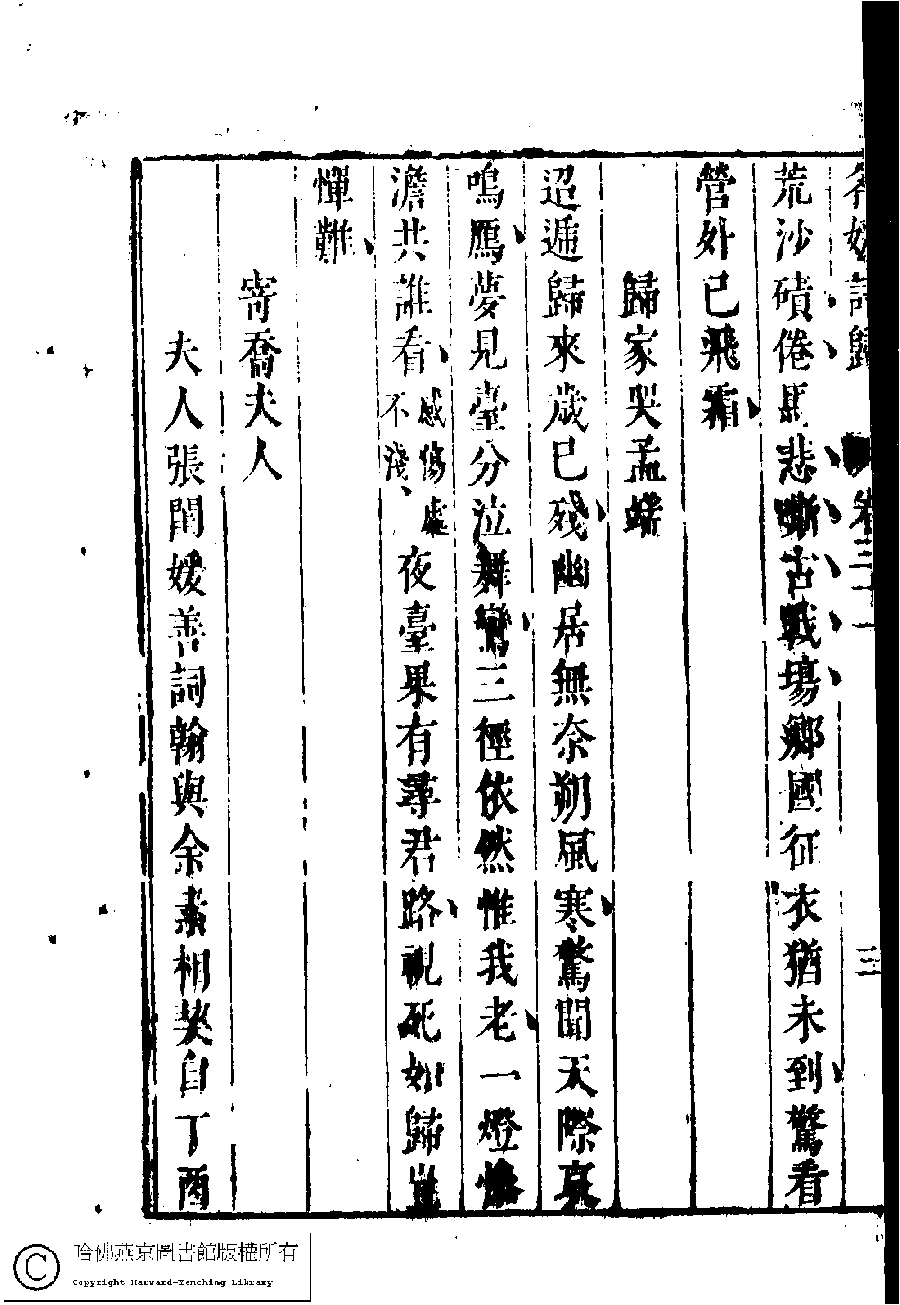 名媛詩歸 卷三十一 三
荒沙磧倦馬悲嘶古戰場鄉國征衣猶未到驚看
營外已飛霜
歸家哭孟端
迢遞歸來歲已殘幽居無奈朔風寒驚聞天際哀
鳴鴈夢見臺分泣舞鸞三徑依然惟我老一燈慘
澹共誰看感傷處不淺夜臺果有尋君路視死如歸豈
憚難
寄喬夫人
夫人張閏媛善詞翰與余素相契自丁酉
哈佛燕京圖書館版權所有
Copyright Harvard-Yenching Library